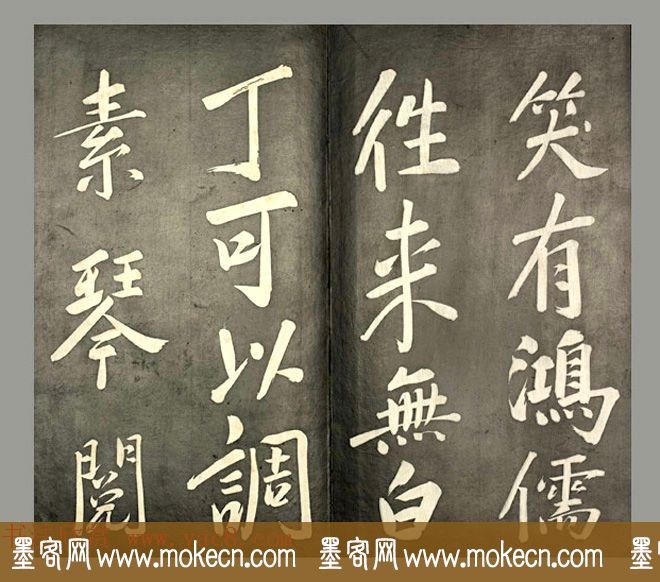 笑有鴻儒
往来無白
丁可以調
素琴閱
墨客网 www.mokecn.com 墨客网 www.mokecn.com